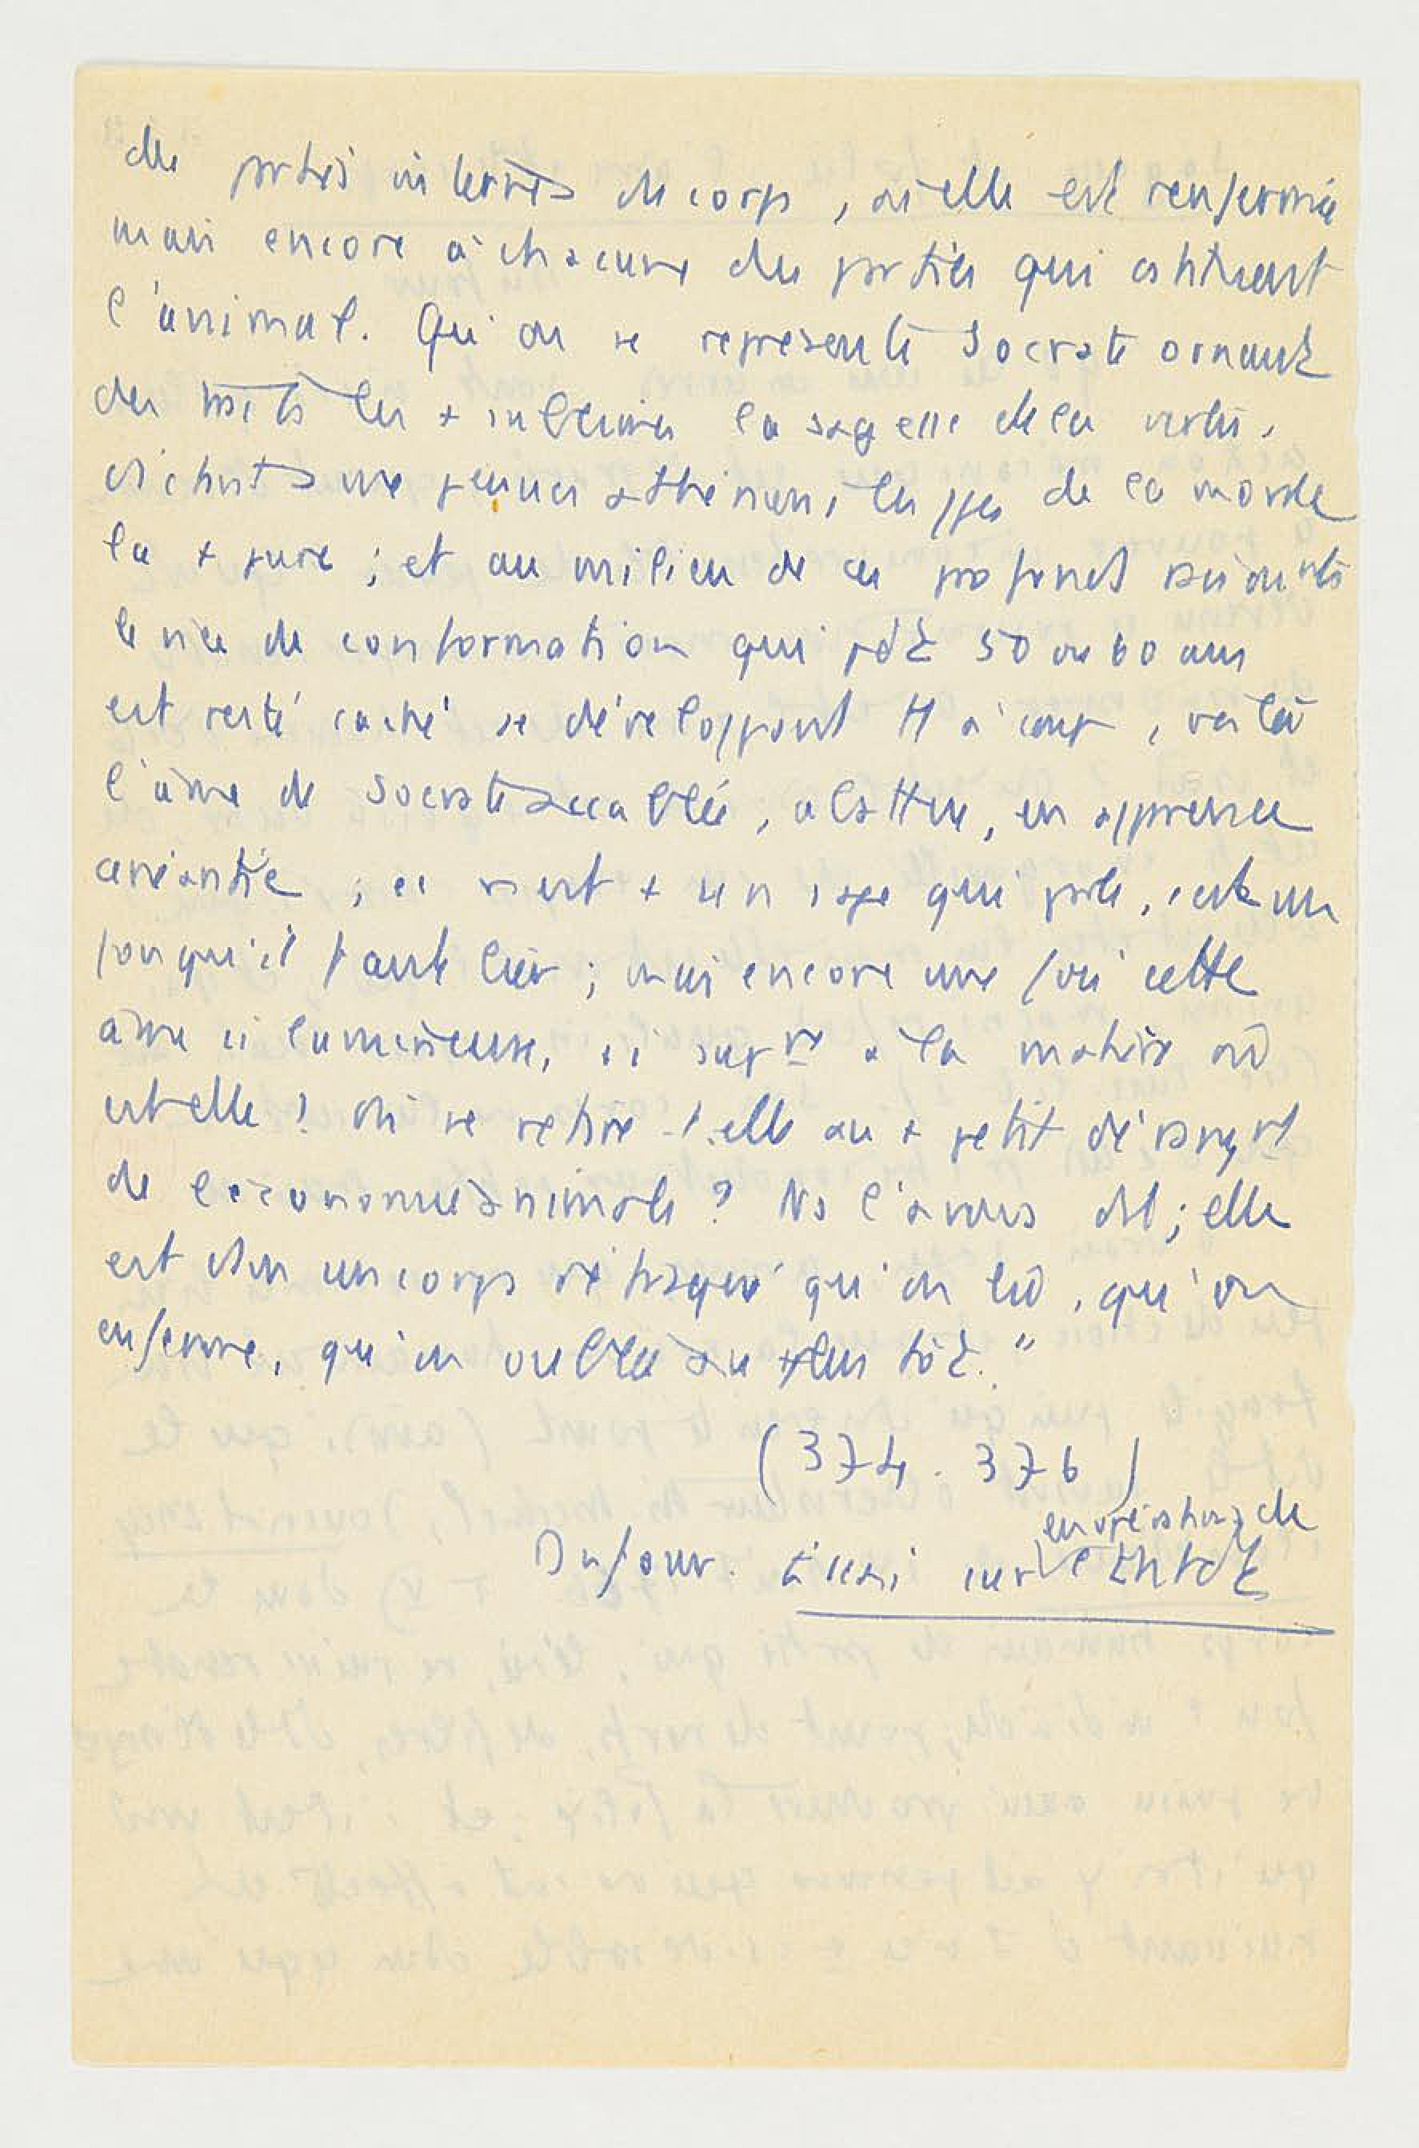 des parties internes du corps, où elle est renfermée
mais encore à chacune des parties qui constituent
l'animal. Qu'on se représente Socrate ornant
des traits les + sublimes la sagesse de la vertu,
dictant aux jeunes athéniens, les ppes de la morale
la + pure ; et au milieu de ces profonds
le vice de conformation qui pdt 50 ou 60 ans
est resté caché se développant tt à coup, voilà
l'âme de Socrate accablée, abattue, en apparence
anéantie ; ce n'est + un sage qui parle, c'est un
fou qu'il faut lier ; mais encore une fois cette
âme si lumineuse, si supre à la matière où
est elle ? Où se retire-t-elle au + petit dérangt
de l'économie animale ? Ns l'avons dit ; elle
est dans un corps détraqué qu'on lie, qu'on
enferme, qu'on oublie au plus tôt."
(374-376)
Dufour. Essai sur les opérations de l'entdt